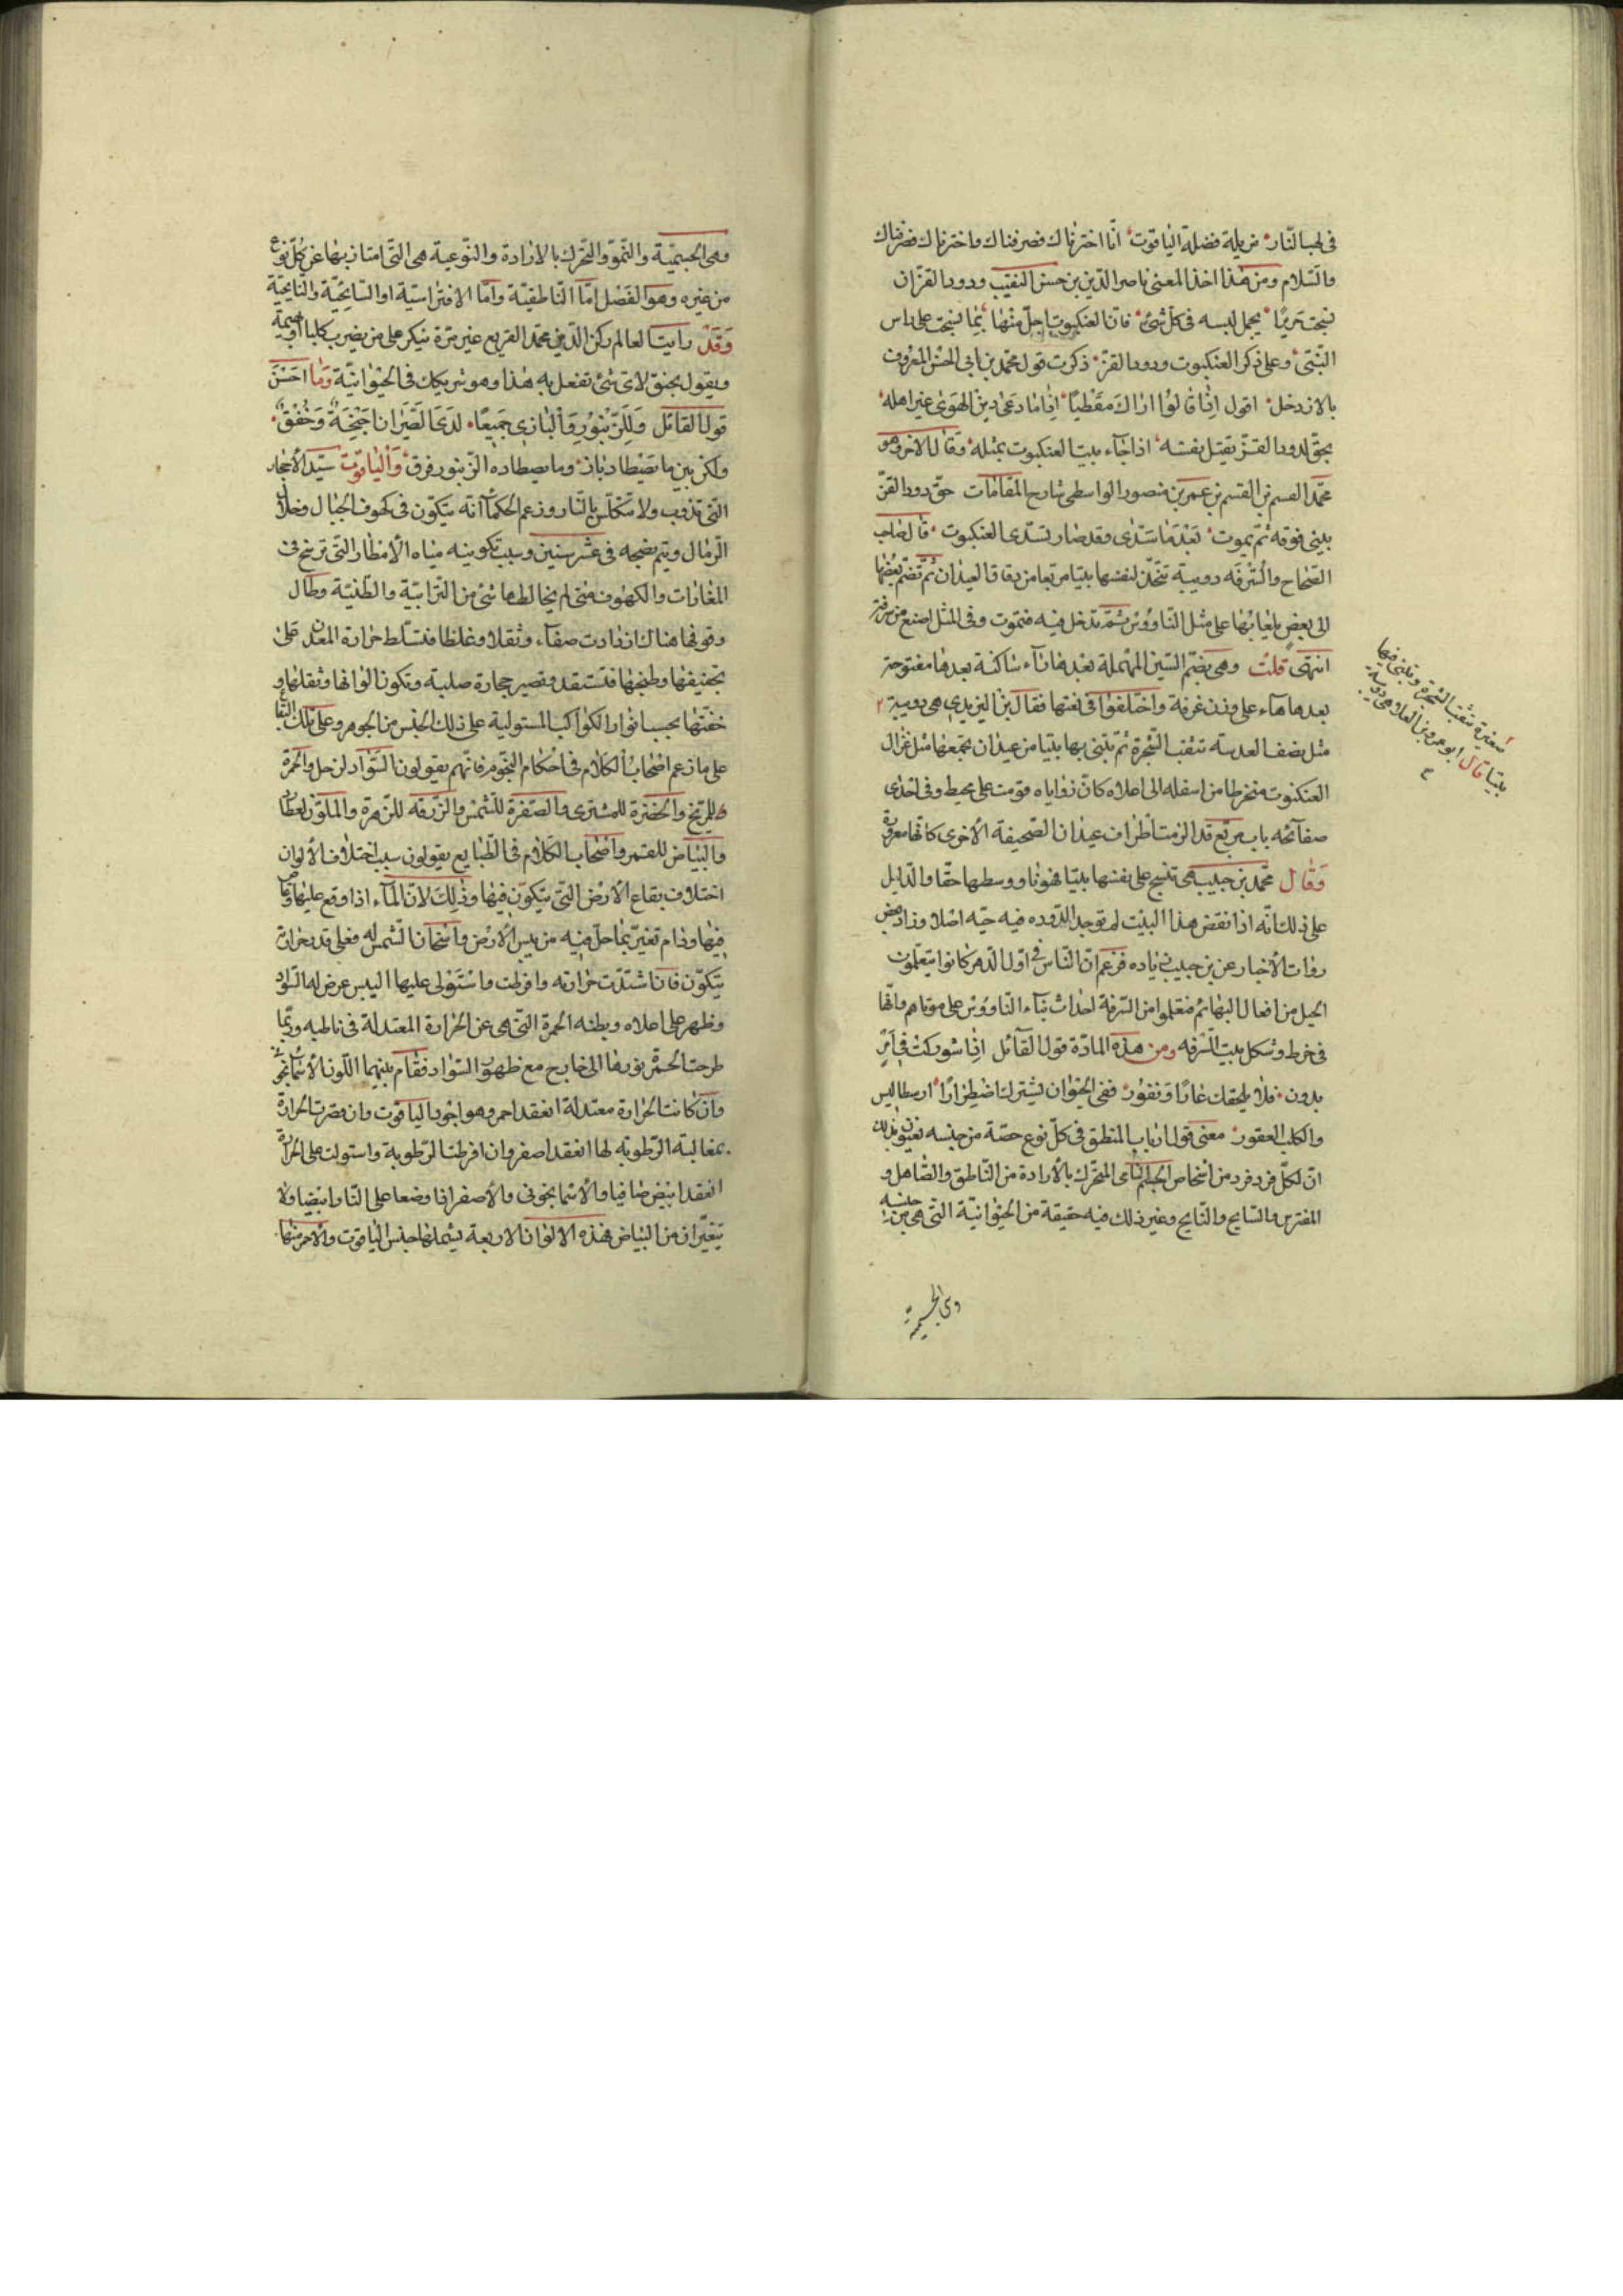 في لهب النار مزيلة فضيلة الياقوت انا اخترناك فصرفناك واخترناك فصرفناك
والسّلام ومن هذا اخذ المعنى ناصر الدّين بن حسن النقيب ودود القزّ ان
نسجت حريرًا يجمل لبسه في كل شئ فانّ العنكبوت اجلّ منها بما نسجت على راس
النّبي وعلى ذكر العنكبوت ودود القزّ ذكرت قول محمّد بن ابي الحسن المعروف
بالازدخل اقول اذا قالوا اراك مقطبًا اذا ما دعى دين الهوى غير اهله
يحقّ لدود القزّ يقتل نفسه اذا جآء بيت العنكبوت بمثله وقال الاخر وهو
محمّد القسم بن القسم بن عمر بن منصور الواسطي شارح المقامات حقّ دود القزّ
يبني فوقه ثمّ يموت بعدما سدّى وقد صار يسدّى العنكبوت قال صاحب
الصّحاح والسّرفه دويبة تتخذ لنفسها بيتا مربعا من دقاق العيدان ثمّ تضمّ بعضها
الى بعض بلعابها على مثل النّاووس ثمّ تدخل فيه فتموت وفي المثل اصنع من سرفة
انتهى قلت وهي بضمّ السّين المهملة بعدها راء ساكنة بعدها مفتوحة
بعدها هاء على وزن غرفة واختلفوا في نعتها فقال بن اليزيدي هي دويبة
صغيرة تنقب الشّجرة وتبني فيها
بيتا قال ابو عمرو بن العلا هي دويبة
مثل نصف العدسة تنقب الشّجرة ثمّ تبتني بها بيتا من عيدان تجمعها مثل غزال
العنكبوت منخرطا من اسفله الى اعلاه كانّ زواياه قومت على محيط وفي احدى
صفآئحه باب مربع قد الزمت اطراف عيدان الصّحيفة الأخرى كانّها مفروة
وقال محمّد بن حبيب هي تنسج على نفسها بيتا فهوناووسها حقّا والدّليل
على ذلك انّه اذا نقض هذا البيت لم توجد الدّوده فيه حيّه اصلا وزاد بعض
رواة الأخبار عن بن حبيب زياده فزعم انّ النّاس في اوّل الدّهر كانوا يتعلّمون
الحيل من افعال البهائم فتعلموا من السّرفة احداث بناء النّاووس على موتاهم وانّها
في خرط وشكل بيت السّرفه ومن هذه المادّة قول القآئل اذا شوركت في امرٍ
بدون فلا يلحقك عارٌ او نفور ففي الحيوان يشترك اضطرارًا ارسطاليس
والكلب العقور معنى قول ارباب المنطق في كلّ نوع حصّة من جنسه يعنون بذلك
انّ لكلّ فرد فرد من اشخاص الجسم النّامي المتحرّك بالأرادة من النّاطق والصّاهل و
المفترس والسّابح والنّابح وغير ذلك فيه حقيقة من الحيوانيّة التي هي من جنسه
وهي الجسمية
وهي الجسميّة والنّموّ والتّحرّك بالارادة والنّوعية هي التّي امتاز بها عن كلّ نوع
من غيره وهو الفصل امّا النّاطقيّة وامّا الافتراسيّة او السّابحيّة والنّابحيّة
وقد رايت العالم ركن الدّين محمّد القريع غير مرّة ينكر على من يضرب كلبا او بهيمة
ويقول بحنق لاي شئ تفعل به هذا وهو شريكك في الحيوانيّة وما احسن
قول القآئل وللزّنبور والبازي جميعًا لدى الطّيران اجنحة وخفق
ولكن بين ما يصطاد باز وما يصطاده الزّنبور فرق والياقوت سيّد الأحجار
التّي تذوب ولا تتكلّس بالنّار وزعم الحكمآ انّه يتكوّن في كهوف الجبال وخلال
الرّمال ويتم نضجه في عشر سنين وسبب تكوينه مياه الأمطار التّي ترسخ في
المغارات والكهوف متى لم يخالطها شئ من التّرابيّة والطّينيّة وطال
وقوفها هناك ازدادت صفآء وثقلا وغلظا فتسلّط حرارة المعدن على
تجفيفها وطبخها فتستعقد وتصير حجارة صلبة وتكون الوانها وثقلها و
خفّتها بحسب انوار الكواكب المستولية على ذلك الجنس من الجوهر وعلى تلك البقاع
على ما زعم اصحاب الكلام في احكام النّجوم فانّهم يقولون السّواد لزحل والحمرة
للمرّيخ والخضرة للمشترى والصّفرة للشّمس والزّرقه للزّهرة والملوّن لعطارد
والبياض للقمر واصحاب الكلام في الطّبايع يقولون سبب اختلاف الألوان
اختلاف بقاع الأرض التّي يتكوّن فيها وذلك لانّ المآء اذا وقع عليها وغاص
فيها ودام تغيّر بما حلّ فيه من يبس الأرض واسخان الشّمس له فعلى قدر حرارته
يتكوّن فان اشتدّت حرارته وافرطت واستولى عليها اليبس عرض له السّواد
وظهر على اعلاه وبطنه الحمرة التّي هي عن الحرارة المعتدلة في باطنه وربّما
طرحت الحمرة نورها الى خارج مع ظهور السّواد فقام بينهما اللّون الأسمانجوني
وان كانت الحرارة معتدلة انعقد احمر وهو اجود الياقوت وان قصرت الحرارة
بمغالبة الرّطوبة لها انعقد اصفر وان افرطت الرّطوبة واستولت على الحرارة
انعقد ابيض صافيا والأسمانجوني والأصفر اذا وضعا على النّار ابيضّا ولا
يتغيّران من البياض فهذه الالوان الاربعة يشملها جنس الياقوت والأحمر منها